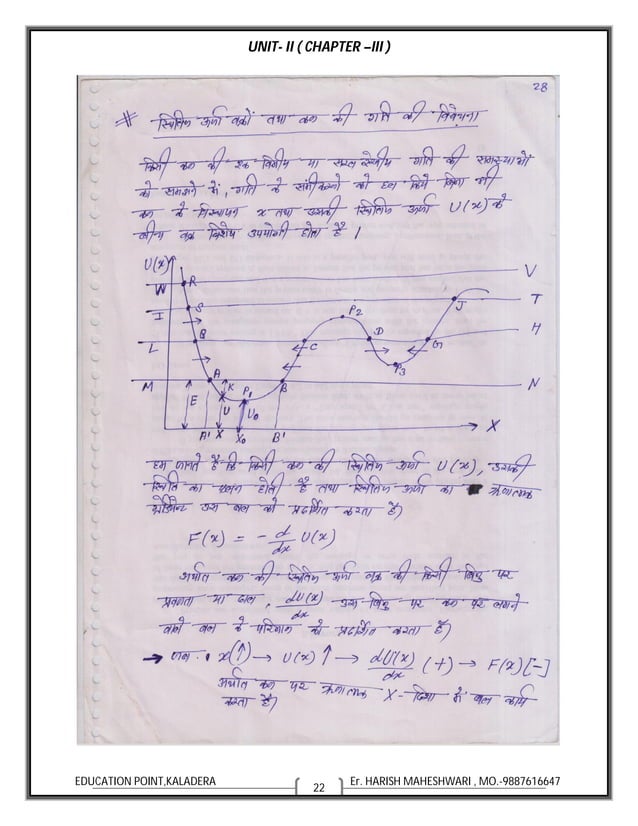 UNIT- II ( CHAPTER –III )
28
# स्थितिज ऊर्जा वक्रों तथा कण की गति की विवेचना
किसी कण की एक विमीय या सरल रेखीय गति की समस्याओं
को समझने में, गति के समीकरणों को हल किये बिना भी
कण के विस्थापन x तथा उसकी स्थितिज ऊर्जा U(x) के
बीच वक्र विशेष उपयोगी होता है ।
U(x)
W R V
I S T
L Q C P2 D G H J
M A K P1 B P3 N
E U U0
A' X X0 B' X
हम जानते है कि किसी कण की स्थितिज ऊर्जा U(x), उसकी
स्थिति का फलन होती है तथा स्थितिज ऊर्जा का ऋणात्मक
ग्रेडिएन्ट उस बल को प्रदर्शित करता है)
F(x) = - d/dx U(x)
अर्थात कण की स्थितिज ऊर्जा वक्र की किसी बिंदु पर
प्रवणता या ढाल, dU(x)/dx उस बिंदु पर कण पर लगने
वाले बल के परिमाण को प्रदर्शित करता है)
→ जब . x(↑) → U(x)↑ → dU(x)/dx (+) → F(x)[-]
अर्थात कण पर ऋणात्मक X- दिशा में बल कार्य
करता है)
EDUCATION POINT,KALADERA 22 Er. HARISH MAHESHWARI , MO.-9887616647